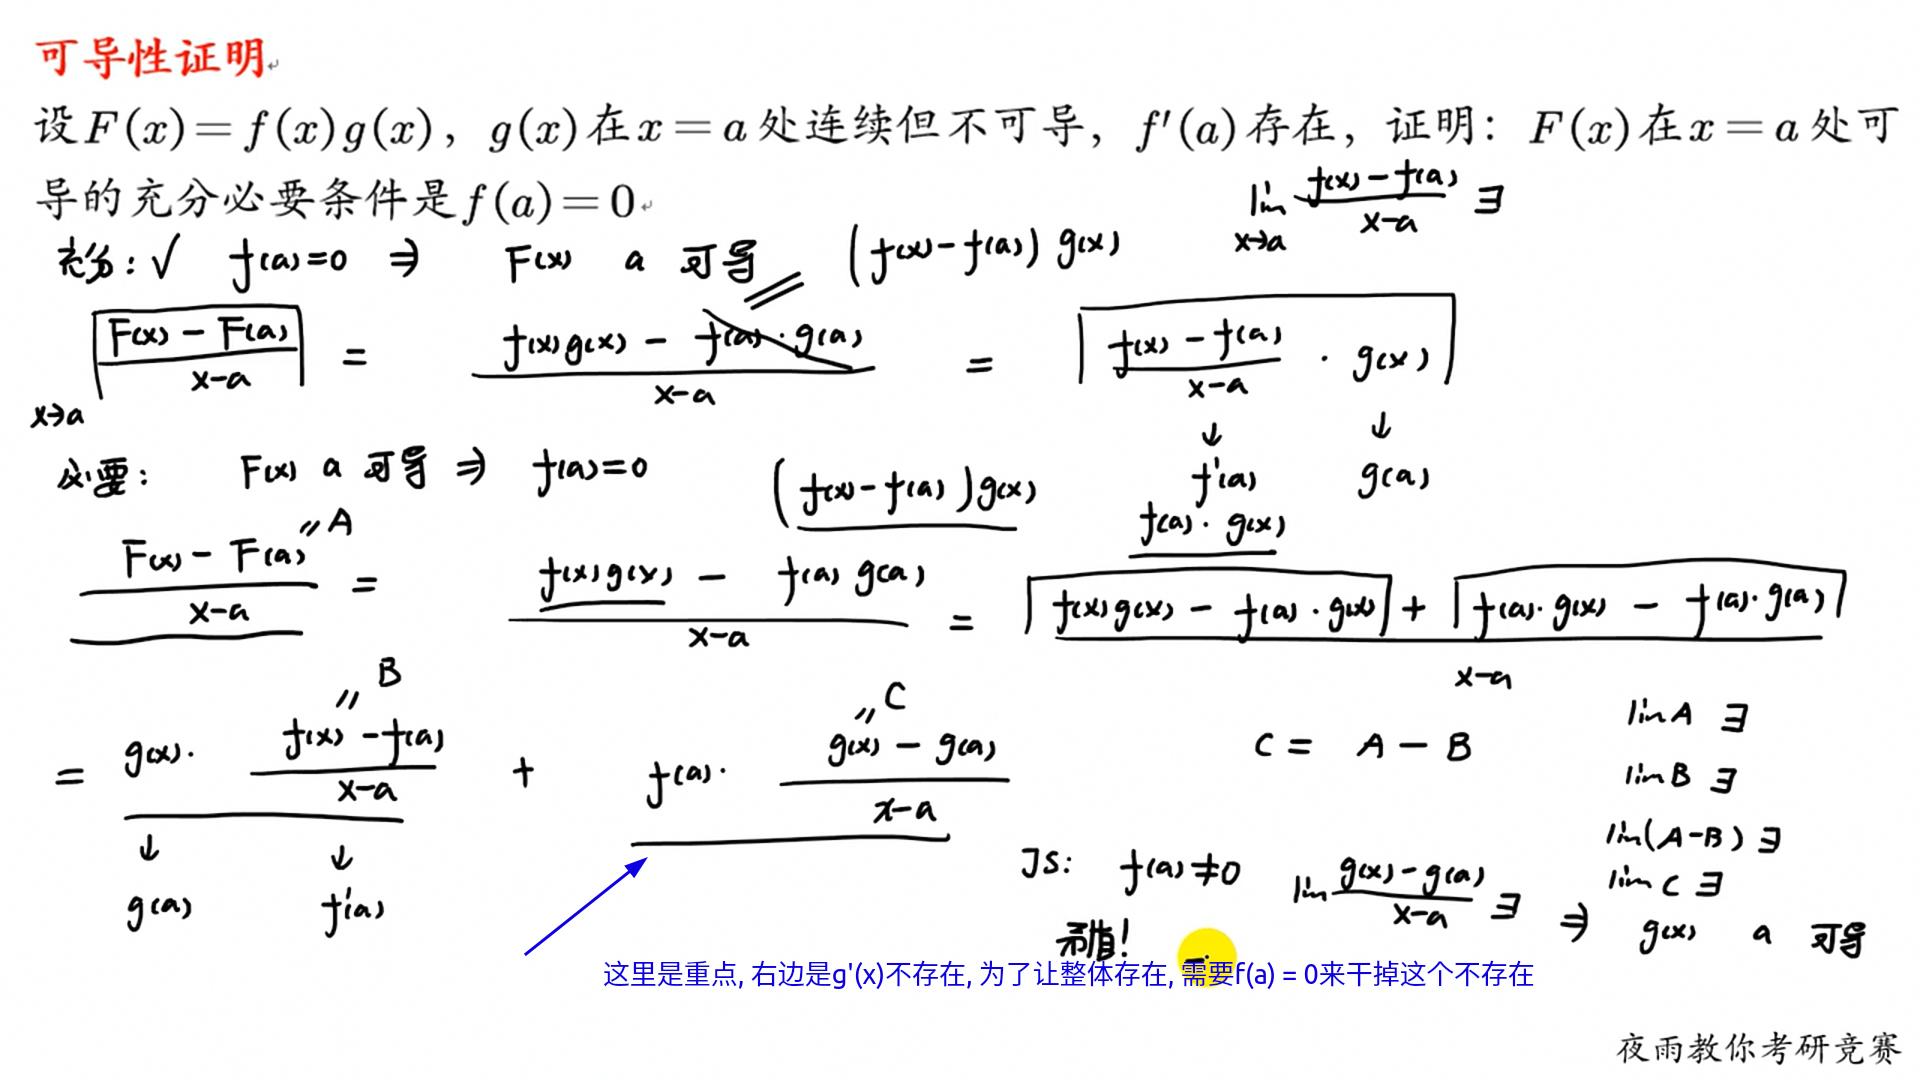 可导性证明
设F(x)=f(x)g(x)，g(x)在x=a处连续但不可导，f′(a)存在，证明：F(x)在x=a处可
导的充分必要条件是f(a)=0
lim x→a (f(x)-f(a))/(x-a) ∃
充分：√ f(a)=0 ⇒ F(x) a 可导 (f(x)-f(a)) g(x)
x→a (F(x)-F(a))/(x-a) = (f(x)g(x) - f(a)·g(a))/(x-a) = (f(x)-f(a))/(x-a) · g(x)
↓ ↓
f'(a) g(a)
必要： F(x) a 可导 ⇒ f(a)=0 (f(x)-f(a))g(x)
f(a)·g(x)
(F(x)-F(a))/(x-a) = (f(x)g(x) - f(a)g(a))/(x-a) = (f(x)g(x) - f(a)·g(x) + f(a)·g(x) - f(a)·g(a))/(x-a)
〃A
〃B 〃C
= g(x)· (f(x)-f(a))/(x-a) + f(a)· (g(x)-g(a))/(x-a)
↓ ↓
g(a) f'(a)
C = A - B
lim A ∃
lim B ∃
lim(A-B) ∃
lim C ∃
JS: f(a)≠0 lim (g(x)-g(a))/(x-a) ∃ ⇒ g(x) a 可导
矛盾!
这里是重点, 右边是g'(x)不存在, 为了让整体存在, 需要f(a) = 0来干掉这个不存在
夜雨教你考研竞赛